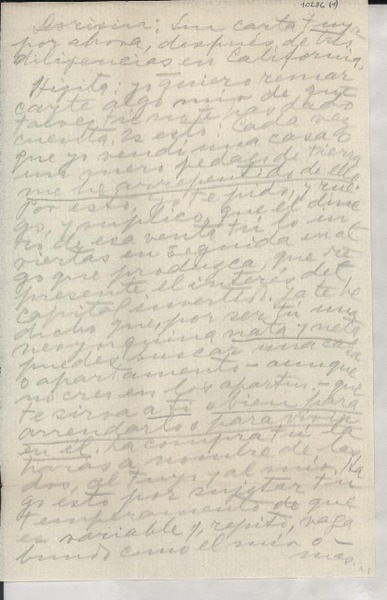 10286 (1)
Dorisima: Sin carta tuya
por ahora, después de tus
diligencias en California,
Hijita: yo quiero remar
carte algo mío de que
talvez tú no te has dado
cuenta. Es esto: Cada vez
que yo vendí una casa o
un mero pedazo de tierra
me he arrepentido de ello.
Por esto, yo te pido, y rue
go, y suplico, que el dine
ro de esa venta tú lo in
viertas en seguida en al
go que produzca, que re
presente el interés del
capital invertido. Ya te he
dicho que, por ser tú una
neoyorquina nata y neta
puedes buscar una casa
o apartamento - aunque
no creo en los apartm. - que
te sirva a ti o bien para
arrendarlo o para vivir
en él. La compra tú la
harás a nombre de las
dos, el tuyo y al mío. Ha
go esto por sujetar tu
temperamento que
es variable y, repito, vaga
bundo como el mío o
más.